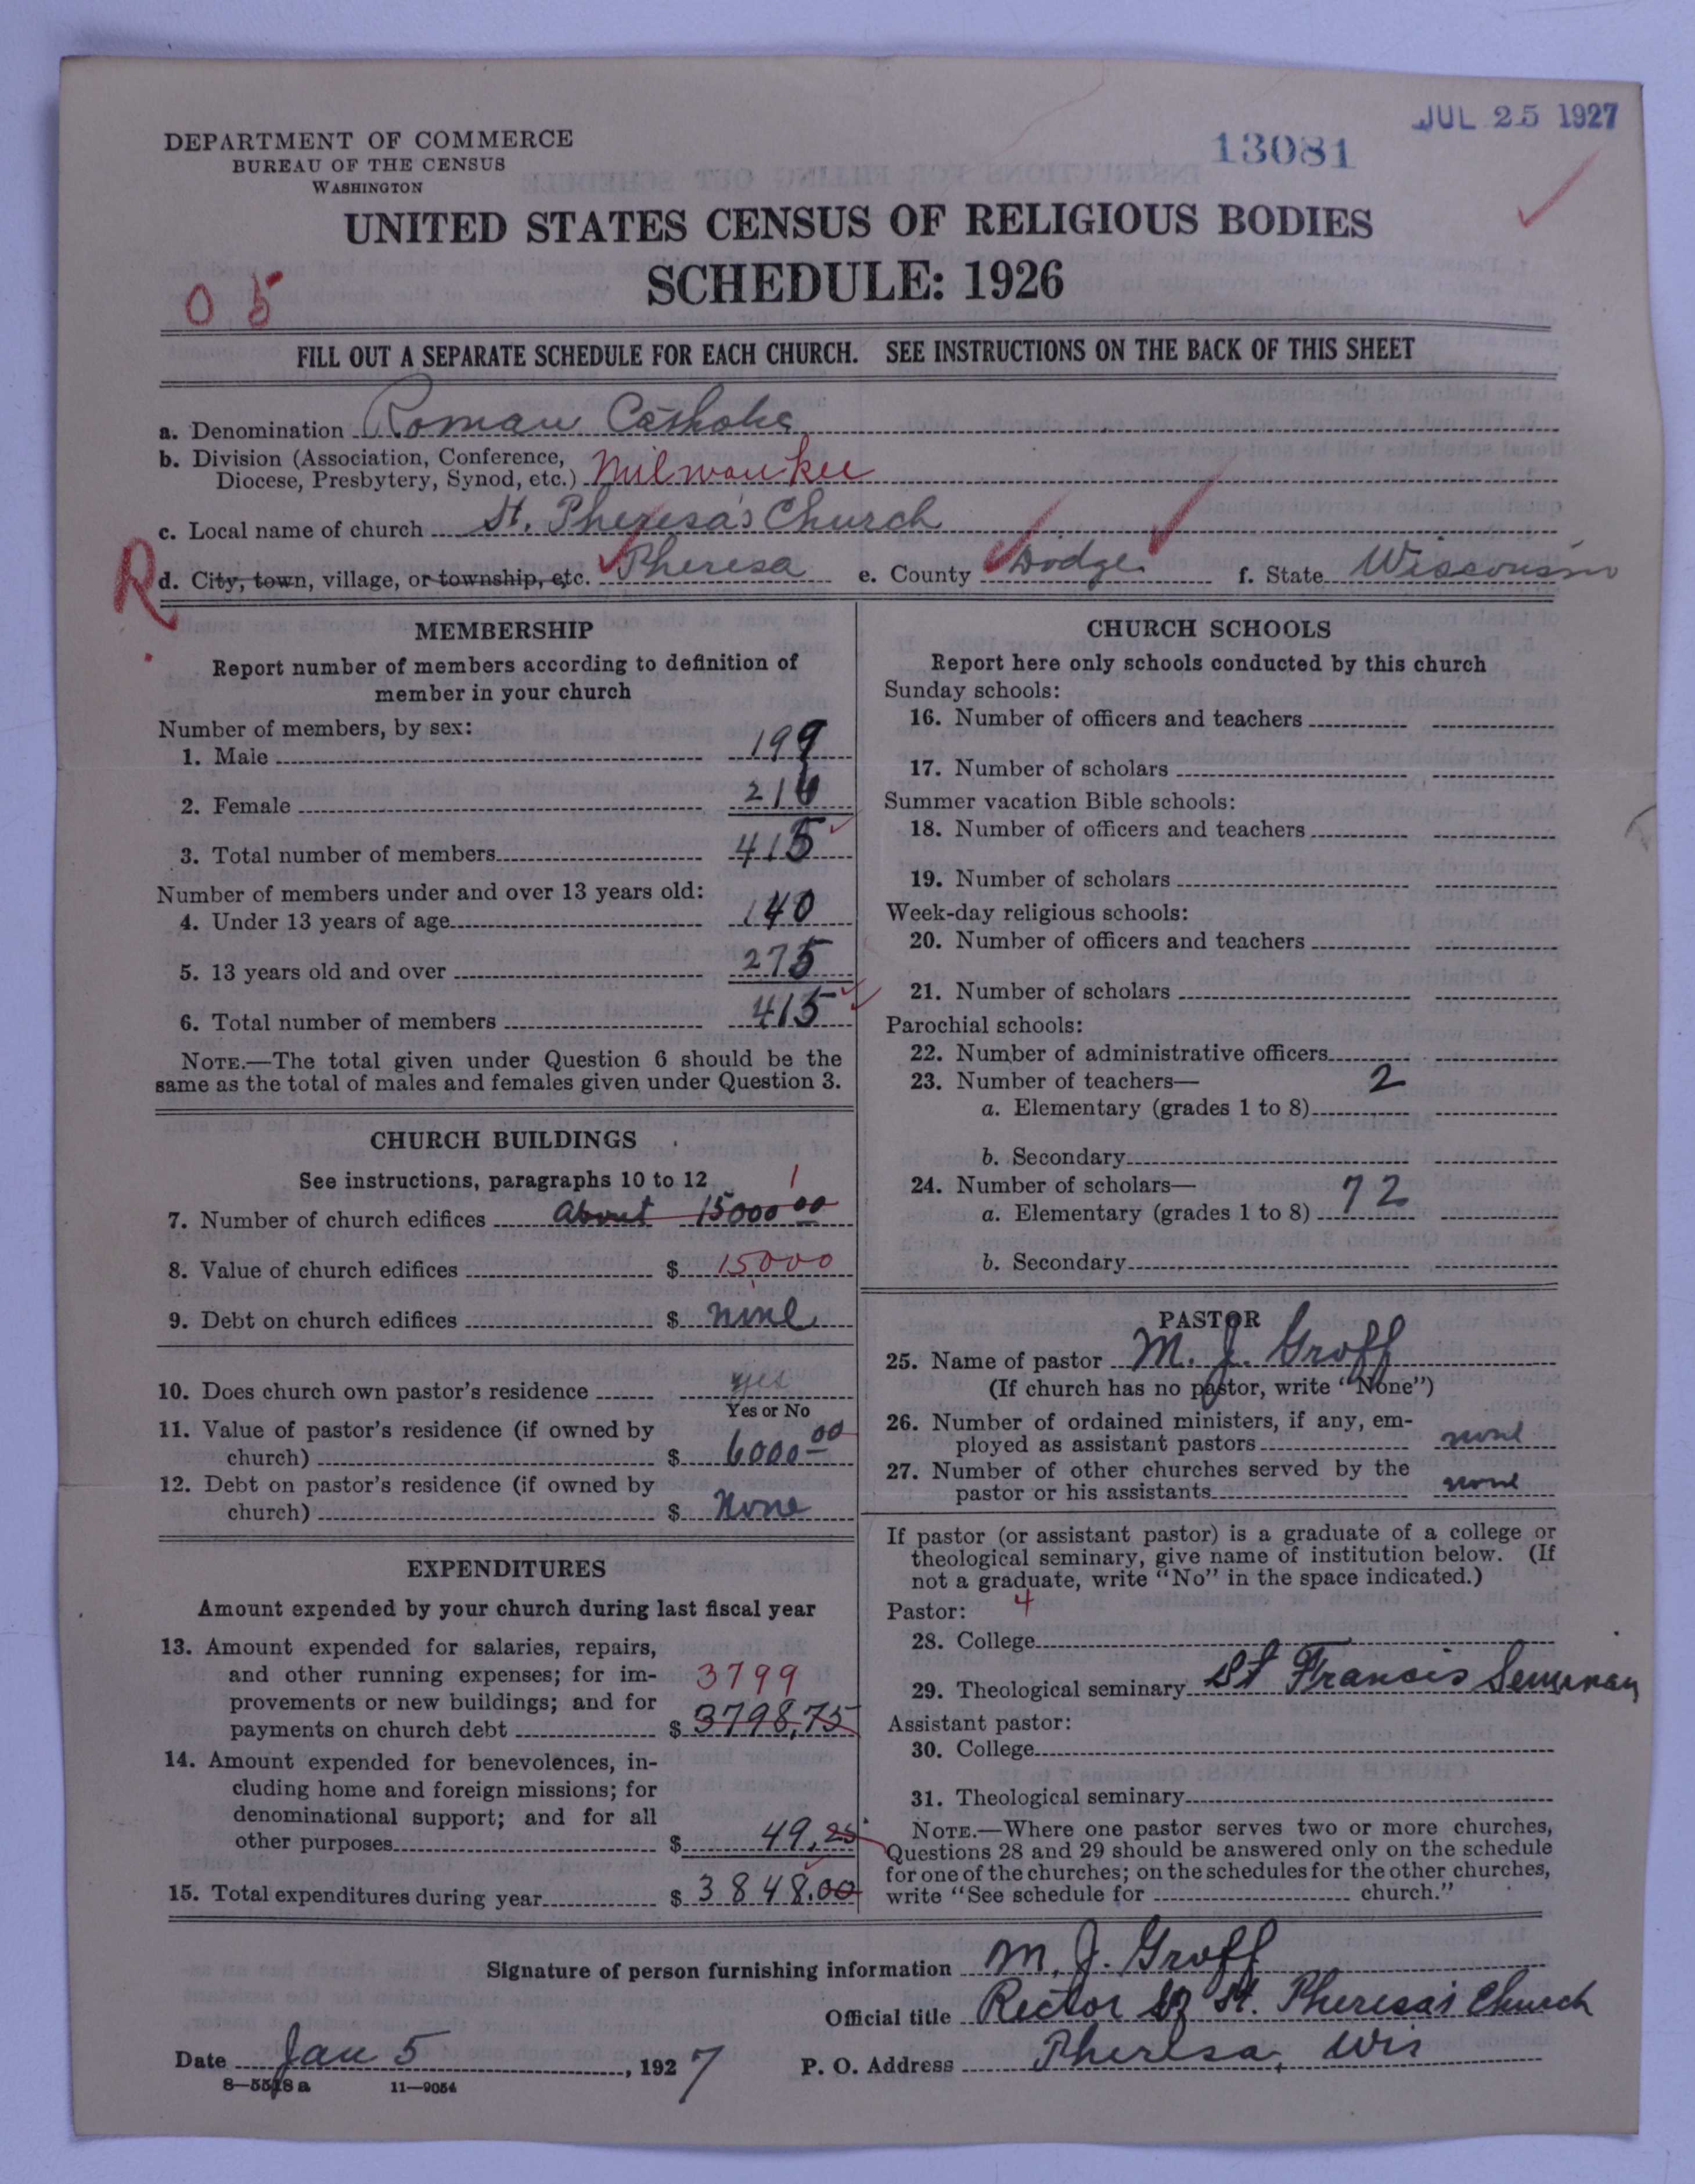 JUL 25 1927
13081
DEPARTMENT OF COMMERCE
BUREAU OF THE CENSUS
WASHINGTON
UNITED STATES CENSUS OF RELIGIOUS BODIES
SCHEDULE: 1926
0 5
FILL OUT A SEPARATE SCHEDULE FOR EACH CHURCH. SEE INSTRUCTIONS ON THE BACK OF THIS SHEET
a. Denomination Roman Catholic
b. Division (Association, Conference,
Diocese, Presbytery, Synod, etc.) Milwaukee
c. Local name of church St. Theresa's Church
R
d. City, town, village, or township, etc. Theresa e. County Dodge f. State Wisconsin
MEMBERSHIP
Report number of members according to definition of
member in your church
Number of members, by sex:
1. Male 199
2. Female 216
3. Total number of members 415
Number of members under and over 13 years old:
4. Under 13 years of age 140
5. 13 years old and over 275
6. Total number of members 415
NOTE.—The total given under Question 6 should be the
same as the total of males and females given under Question 3.
CHURCH BUILDINGS
See instructions, paragraphs 10 to 12
1
7. Number of church edifices About 15000 00
8. Value of church edifices $ 15000
9. Debt on church edifices $ none
10. Does church own pastor's residence yes
Yes or No
11. Value of pastor's residence (if owned by
church) $ 6000 00
12. Debt on pastor's residence (if owned by
church) $ None
EXPENDITURES
Amount expended by your church during last fiscal year
13. Amount expended for salaries, repairs,
and other running expenses; for im-
3799
provements or new buildings; and for
payments on church debt $ 3798.75
14. Amount expended for benevolences, in-
cluding home and foreign missions; for
denominational support; and for all
other purposes $ 49.25
15. Total expenditures during year $ 3848.00
CHURCH SCHOOLS
Report here only schools conducted by this church
Sunday schools:
16. Number of officers and teachers
17. Number of scholars
Summer vacation Bible schools:
18. Number of officers and teachers
19. Number of scholars
Week-day religious schools:
20. Number of officers and teachers
21. Number of scholars
Parochial schools:
22. Number of administrative officers
23. Number of teachers—
a. Elementary (grades 1 to 8) 2
b. Secondary
24. Number of scholars—
a. Elementary (grades 1 to 8) 72
b. Secondary
PASTOR
25. Name of pastor M. J. Groff
(If church has no pastor, write "None")
26. Number of ordained ministers, if any, em-
ployed as assistant pastors none
27. Number of other churches served by the
pastor or his assistants none
If pastor (or assistant pastor) is a graduate of a college or
theological seminary, give name of institution below. (If
not a graduate, write "No" in the space indicated.)
Pastor: 4
28. College
29. Theological seminary St Francis Seminary
Assistant pastor:
30. College
31. Theological seminary
NOTE.—Where one pastor serves two or more churches,
Questions 28 and 29 should be answered only on the schedule
for one of the churches; on the schedules for the other churches,
write "See schedule for church."
Signature of person furnishing information M. J. Groff
Official title Rector of St. Theresa's Church
Date Jan 5, 1927 P. O. Address Theresa, Wis
8—5518 a 11—9054